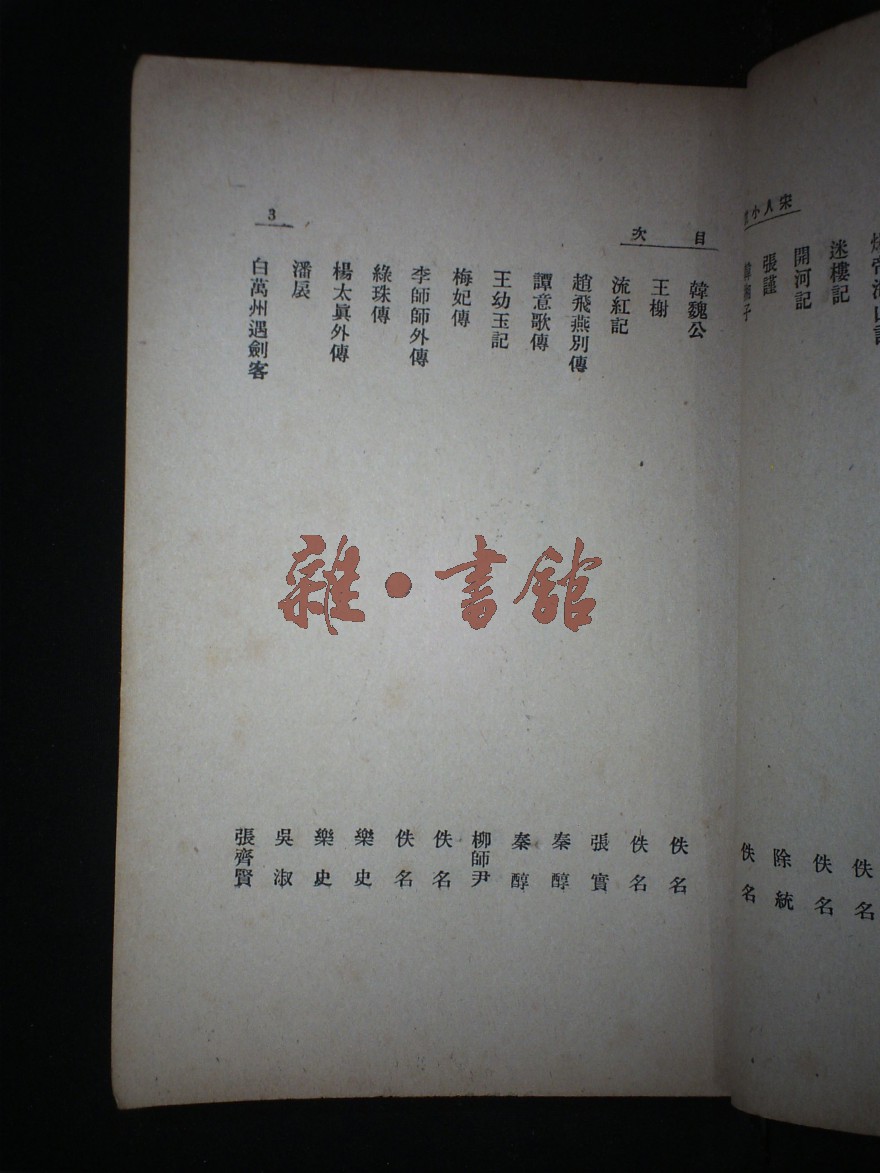 宋人小
迷樓記 佚名
開河記 佚名
張謹 除統
韓湘子 佚名
目次
韓魏公 佚名
王榭 佚名
流紅記 張實
趙飛燕別傳 秦醇
譚意歌傳 秦醇
王幼玉記 柳師尹
梅妃傳 佚名
李師師外傳 佚名
綠珠傳 樂史
楊太眞外傳 樂史
潘扆 吳淑
白萬州遇劍客 張齊賢
3
雜·書館